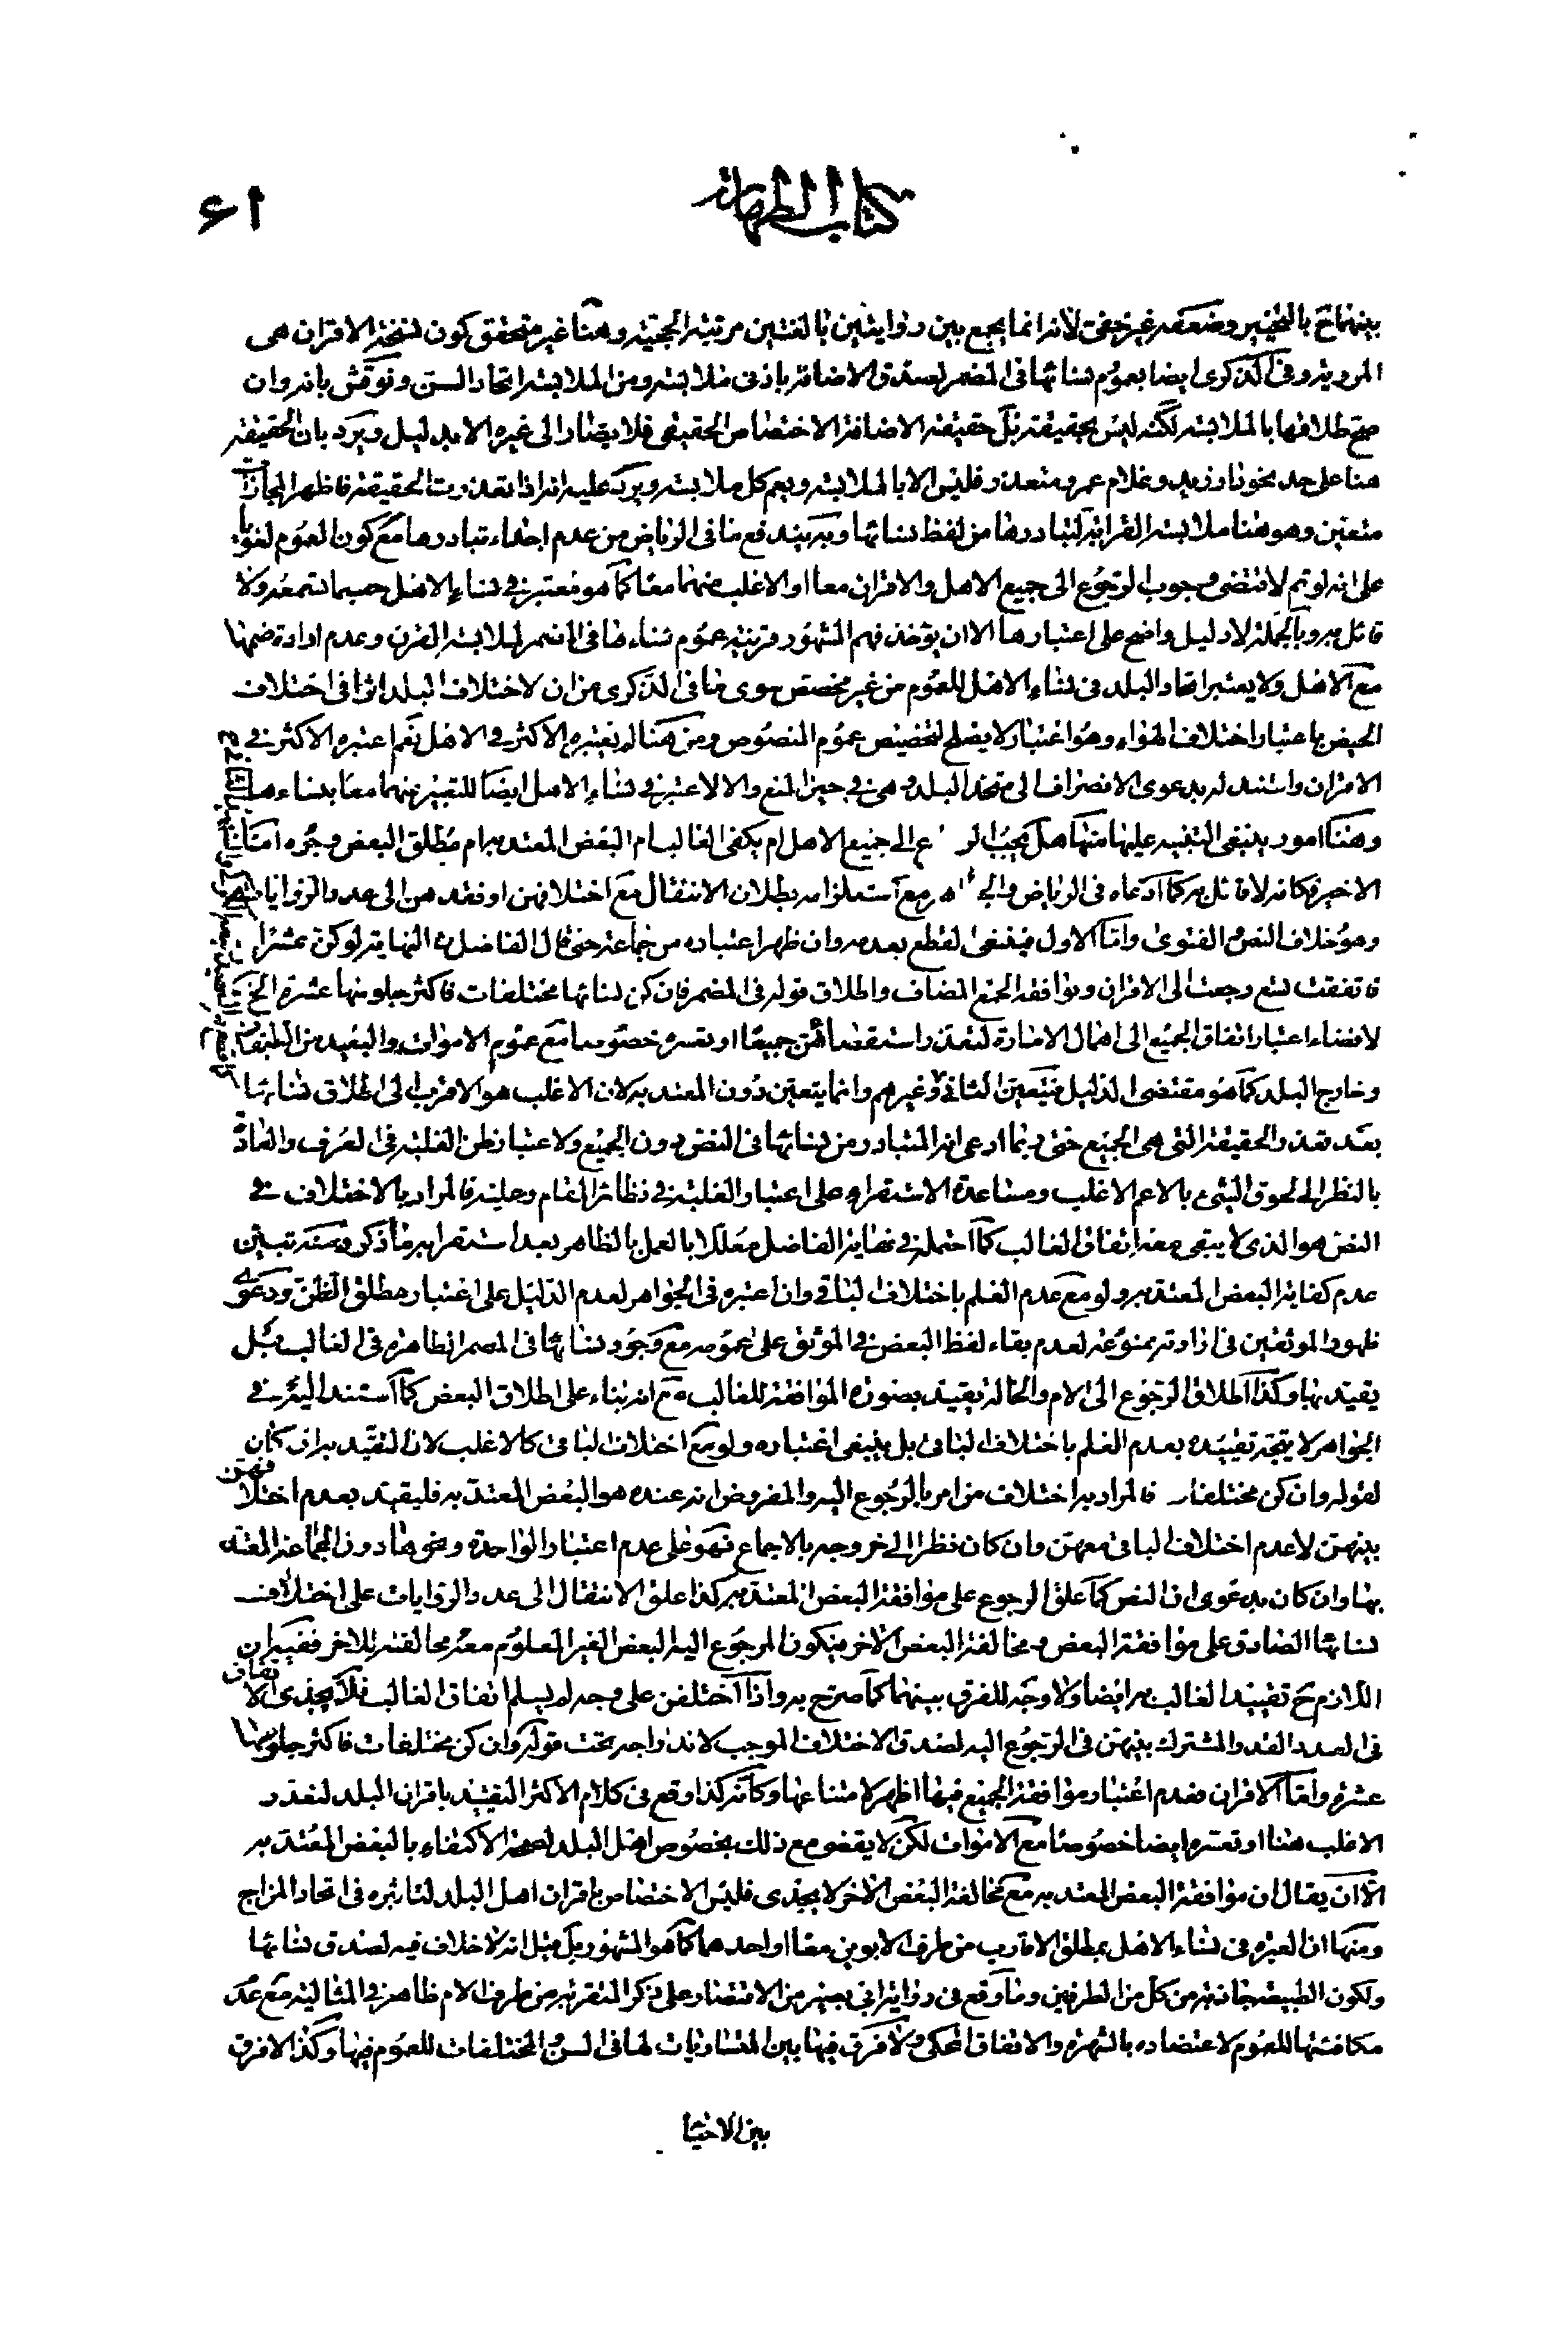 كتاب الطهارة
۶۱
بينهما ح بالتخيير وضعفه غير خفي لأنه انما يجمع بين روايتين بالغتين مرتبة الحجية وهنا غير متحقق كون نسخة الاقران هى
المروية وفى الذكرى ايضا بعموم نسائها فى المضمر لصدق الاضافة بادنى ملابسة ومن الملابسة اتحاد السن ونوقش بانه وان
صح اطلاقها بالملابسة لكنه ليس بحقيقة بل حقيقة الاضافة الاختصاص الحقيقى فلا يصار الى غيره الا بدليل ويرد بان الحقيقة
هنا على حد نحو نار زيد وغلام عمرو متعذر فليس الا بالملابسة ويعم كل ملابسة ويرد عليه انه اذا تعذرت الحقيقة فاظهر المجازات
متعين وهو هنا ملابسة القرابة لتبادرها من لفظ نسائها وبه يندفع ما فى الرياض من عدم اجداء تبادرها مع كون العموم لغويا
على انه لو تم لاقتضى وجوب الرجوع الى جميع الاهل والاقران معا او الاغلب منهما معا كما هو معتبر في نساء الاهل حسبما تسمعه ولا
قائل به وبالجملة لا دليل واضح على اعتبارها الا ان يؤخذ فهم المشهور قرينة عموم نساءها فى المضمر لملابسة القرن وعدم ارادة ضمها
مع الاهل ولا يعتبر اتحاد البلد فى نساء الاهل للعموم من غير مخصص سوى ما فى الذكرى من ان لاختلاف البلد اثرا فى اختلاف
الحيض باعتبار اختلاف الهواء وهو اعتبار لا يصلح لتخصيص عموم النصوص ومن هنا لم يعتبره الاكثر في الاهل نعم اعتبره الاكثر في
الاقران واستند له بدعوى الانصراف الى متحد البلد وهى في حيز المنع والا لاعتبر في نساء الاهل ايضا للتعبير عنهما معا بنساءها
وهنا امور ينبغى التنبيه عليها منها هل يجب الرجوع الى جميع الاهل ام يكفى الغالب ام البعض المعتد به ام مطلق البعض وجوه امتنا
الاخير فكانه لا قائل به كما ادعاه فى الرياض والجواهر مع استلزامه بطلان الانتقال مع اختلافهن او فقدهن الى عدد الروايات
وهو خلاف النص والفتوى واما الاول فينبغى القطع بعدمه وان ظهر اعتباره من جماعة حتى قال الفاضل فى النهاية لو كن عشرا
فاتفقت تسع رجعت الى الاقران ويوافقه الجمع المضاف واطلاق قوله فى المضمر فان كن نسائها مختلفات فاكثر جلوسها عشرة الخ
لافضاء اعتبار اتفاق الجميع الى اهمال الامارة لتعذر استقصائهن جميعا او تعسره خصوصا مع عموم الاموات والبعيد من الطبقات
وخارج البلد كما هو مقتضى الدليل فيتعين الثانى وغيرهم وانما يتعين دون المعتد به لان الاغلب هو الاقرب الى اطلاق نسائها
بعد تعذر الحقيقة التى هى الجميع حتى ربما ادعى انه المتبادر من نسائها فى النص دون الجميع ولاعتبار ظن الغلبة فى العرف والعادة
بالنظر الى لحوق الشئ بالاعم الاغلب ومساعدة الاستقراء على اعتبار الغلبة في نظائر المقام وحينئذ فالمراد بالاختلاف في
النص هو الذى لا يبقى معه اتفاق الغالب كما احتمله في نهاية الفاضل معللا بالعمل بالظاهر بعد استقرابه ما ذكر ومنه تبين
عدم كفاية البعض المعتد به ولو مع عدم العلم باختلاف الباقى وان اعتبره فى الجواهر لعدم الدليل على اعتبار مطلق الظن ودعوى
ظهور الموثقين فى ارادته ممنوعة لعدم بقاء لفظ البعض في الموثق على عمومه مع وجود نسائها فى المضمر الظاهرة فى الغالب بل
يقيد بها وكذا اطلاق الرجوع الى الام والخالة يقيد بصورة الموافقة للغالب مع انه بناء على اطلاق البعض كما استند اليه في
الجواهر لا يتجه تقييده بعدم العلم باختلاف الباقى بل ينبغى اعتباره ولو مع اختلاف الباقى كالاغلب لان التقييد به ان كان
لقوله وان كن مختلفات فالمراد به اختلاف من امر بالرجوع اليه والمفروض انه عنده هو البعض المعتد به فليقيد بعدم اختلافهن
بينهن لا عدم اختلاف الباقى معهن وان كان نظرا الى خروجه بالاجماع فهو على عدم اعتبار الواحدة ونحوها دون الجماعة المعتد
بها وان كان بدعوى ان النص كما علق الرجوع على موافقة البعض المعتد به كذا علق الانتقال الى عدد الروايات على اختلاف
نسائها الصادق على موافقة البعض ومخالفة البعض الاخر فيكون المرجوع اليه البعض الغير المعلوم معه مخالفته للاخر ففيه ان
اللازم ح تقييد الغالب به ايضا ولا وجه للفرق بينهما كما صرح به واذا اختلفن على وجه لم يسلم اتفاق الغالب فلا يجدى الاتفاق
فى العدد القدر المشترك بينهن فى الرجوع اليه لصدق الاختلاف الموجب لاندراجه تحت قوله وان كن مختلفات فاكثر جلوسها
عشرة واما الاقران فعدم اعتبار موافقة الجميع فيها اظهر لامتناعها وكانه كذا وقع فى كلام الاكثر التقييد باقران البلد لتعذر
الاغلب هنا او تعسره ايضا خصوصا مع الاموات لكن لا يقضى مع ذلك بخصوص اهل البلد لصحة الاكتفاء بالبعض المعتد به
الا ان يقال ان موافقة البعض المعتد به مع مخالفة البعض الاخر لا يجدى فليس الاختصاص باقران اهل البلد لتاثيره فى اتحاد المزاج
ومنها ان العبرة فى نساء الاهل بمطلق الاقارب من طرف الابوين معا او احدهما كما هو المشهور بل قيل انه لا خلاف فيه لصدق نسائها
ولكون الطبيعة جاذبة من كل من الطرفين وما وقع فى رواية ابي بصير من الاقتصار على ذكر المتقربة من طرف الام ظاهر في المثالية مع عدم
مكافئتها للعموم لاعتضاده بالشهرة والاتفاق المحكى ولا فرق فيها بين المتساويات لها فى السن والمختلفات للعموم فيها وكذا لا فرق
بين الاحياء